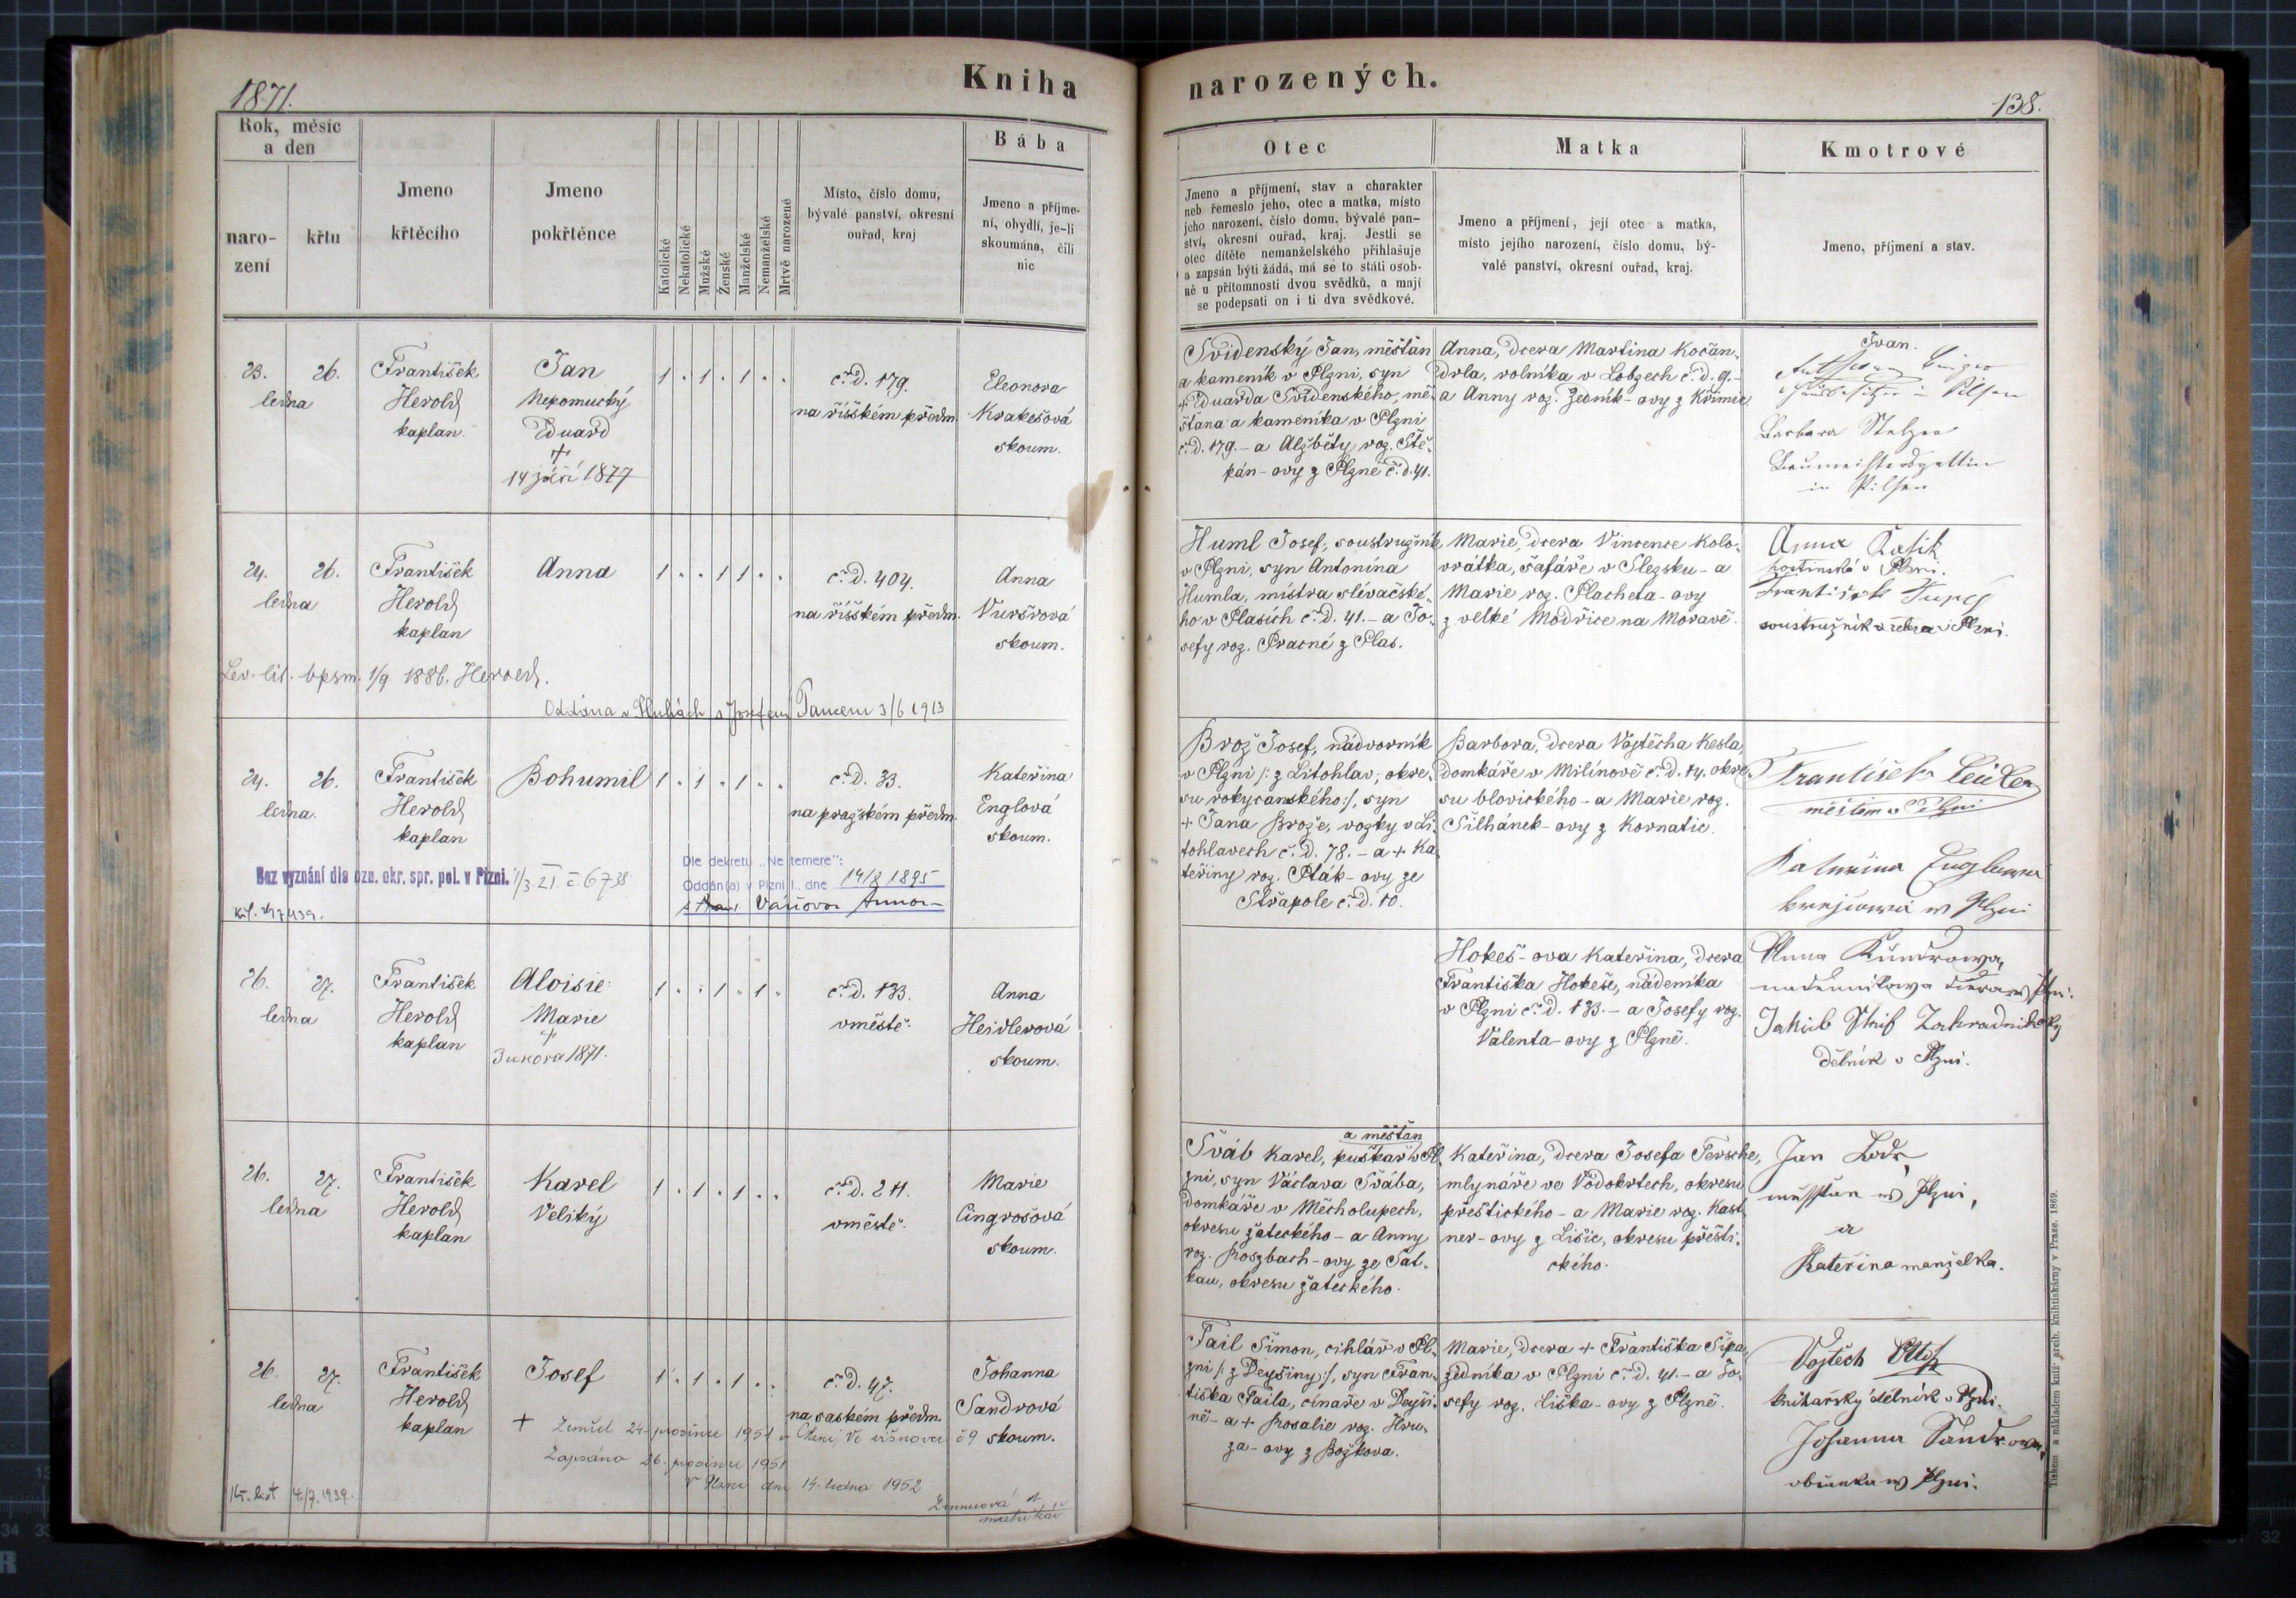 1871.
Kniha
narozených.
138.
Rok, měsíc
a den
naro-
zení
křtu
Jmeno
křtěcího
Jmeno
pokřtěnce
Katolické
Nekatolické
Mužské
Ženské
Manželské
Nemanželské
Mrtvě narozené
Místo, číslo domu,
bývalé panství, okresní
ouřad, kraj
Bába
Jmeno a příjme-
ní, obydlí, je-li
skoumána, čili
nic
Otec
Jmeno a příjmení, stav a charakter
neb řemeslo jeho, otec a matka, místo
jeho narození, číslo domu, bývalé pan-
ství, okresní ouřad, kraj. Jestli se
otec dítěte nemanželského přihlašuje
a zapsán býti žádá, má se to státi osob-
ně u přítomnosti dvou svědků, a mají
se podepsati on i ti dva svědkové.
Matka
Jmeno a příjmení, její otec a matka,
místo jejího narození, číslo domu, bý-
valé panství, okresní ouřad, kraj.
Kmotrové
Jmeno, příjmení a stav.
23. 26.
ledna
František
Herold
kaplan.
Jan
Nepomucký
Eduard
+
14 září 1877
1 . 1 . 1 . .
č. d. 179.
na říšském předm.
Eleonora
Krakešová
skoum.
Svidenský Jan, měštan
a kameník v Plzni, syn
+ Eduarda Svidenského, mě-
štana a kameníka v Plzni
č. d. 179. – a Alžběty roz. Stě-
kán-ovy z Plzně č. d. 41.
Anna, dcera Martina Kočan-
drla, rolníka v Lobzech č. d. 9. –
a Anny roz. Zedník-ovy z Křimic
Ivan.
in Pilsen
Barbara Stelzer
Baumeistersgattin
in Pilsen
24. 26.
ledna
František
Herold
kaplan
Anna
1 . . 1 1 . .
č. d. 404.
na říšském předm.
Anna
Vuršrová
skoum.
Lev. lit. bpsm. 1/9 1886. Herold.
Oddána v Hlubách s Josefem Pancem 3/6 1913
Huml Josef, soustružník
v Plzni, syn Antonína
Humla, mistra slévačské-
ho v Plasích č. d. 41. – a Jo-
sefy roz. Pracné z Plas.
Marie, dcera Vincence Kolo-
vrátka, šafáře v Slezsku – a
Marie roz. Placheta-ovy
z velké Modřice na Moravě.
Anna
hostinská v Plzni.
František
soustružník v Plzni.
24. 26.
ledna.
František
Herold
kaplan
Bohumil
1 . 1 . 1 . .
č. d. 33.
na pražském předm.
Kateřina
Englová
skoum.
Bez vyznání dle ozn. okr. spr. pol. v Plzni. 1/3. 21. č. 6738
Dle dekretu „Ne temere“:
Oddán(a) v Plzni I., dne 14/8 1895
Annou
Brož Josef, nádvorník
v Plzni /: z Litohlav, okre-
su rokycanského :/, syn
+ Jana Brože, vozky v Li-
tohlavech č. d. 78. – a + Ka-
teřiny roz. Pták-ovy ze
Střapole č. d. 10.
Barbora, dcera Vojtěcha Kesla,
domkáře v Milínově č. d. 14. okre-
su blovického – a Marie roz.
Šilhánek-ovy z Kornatic.
František
měštan v Plzni
Englowa
krejčowá w Plzni
26. 27.
ledna
František
Herold
kaplan
Aloisie
Marie
+
3 února 1871.
1 . . 1 . 1 .
č. d. 133.
v městě.
Anna
Heidlerová
skoum.
Hokeš-ova Kateřina, dcera
Františka Hokeše, nádeníka
v Plzni č. d. 133. – a Josefy roz.
Valenta-ovy z Plzně.
Anna Kundrowa,
nadenikowa dcera w Plzni.
Jakub Zahradnický
dělník v Plzni.
26. 27.
ledna
František
Herold
kaplan
Karel
Veliký
1 . 1 . 1 . .
č. d. 211.
v městě.
Marie
Cingrošová
skoum.
a měštan
Šváb Karel, puškař v Pl-
zni, syn Václava Švába,
domkáře v Měcholupech,
okresu žateckého – a Anny
roz. Roszbach-ovy ze Sat-
kau, okresu žateckého.
Kateřina, dcera Josefa Persche,
mlynáře ve Vodokrtech, okresu
přeštického – a Marie roz. Kast-
ner-ovy z Lišic, okresu přešti-
ckého.
Jan
w Plzni,
a
Kateřina manželka.
26. 27.
ledna
František
Herold
kaplan
Josef
1 . 1 . 1 . .
č. d. 47.
na saském předm.
Johanna
Sandrová
skoum.
+ Zemřel 24. prosince 1951 v Plzni, Ve višňovce č 9
Zapsáno 26. prosince 1951
V Plzni dne 14. ledna 1952
Kř. list 4./7. 1939.
matrikář
Pail Šimon, cihlář v Pl-
zni /: z Deyšiny :/, syn Fran-
tiška Paila, cínaře v Deyši-
ně – a + Rosalie roz. Hru-
za-ovy z Božkova.
Marie, dcera + Františka Šípa,
zedníka v Plzni č. d. 41. – a Jo-
sefy roz. Liška-ovy z Plzně.
Vojtěch
knihařský dělník v Plzni.
Johanna Sandrowa,
w Plzni.
Tiskem a nákladem kníž. arcib. knihtiskárny v Praze. 1869.